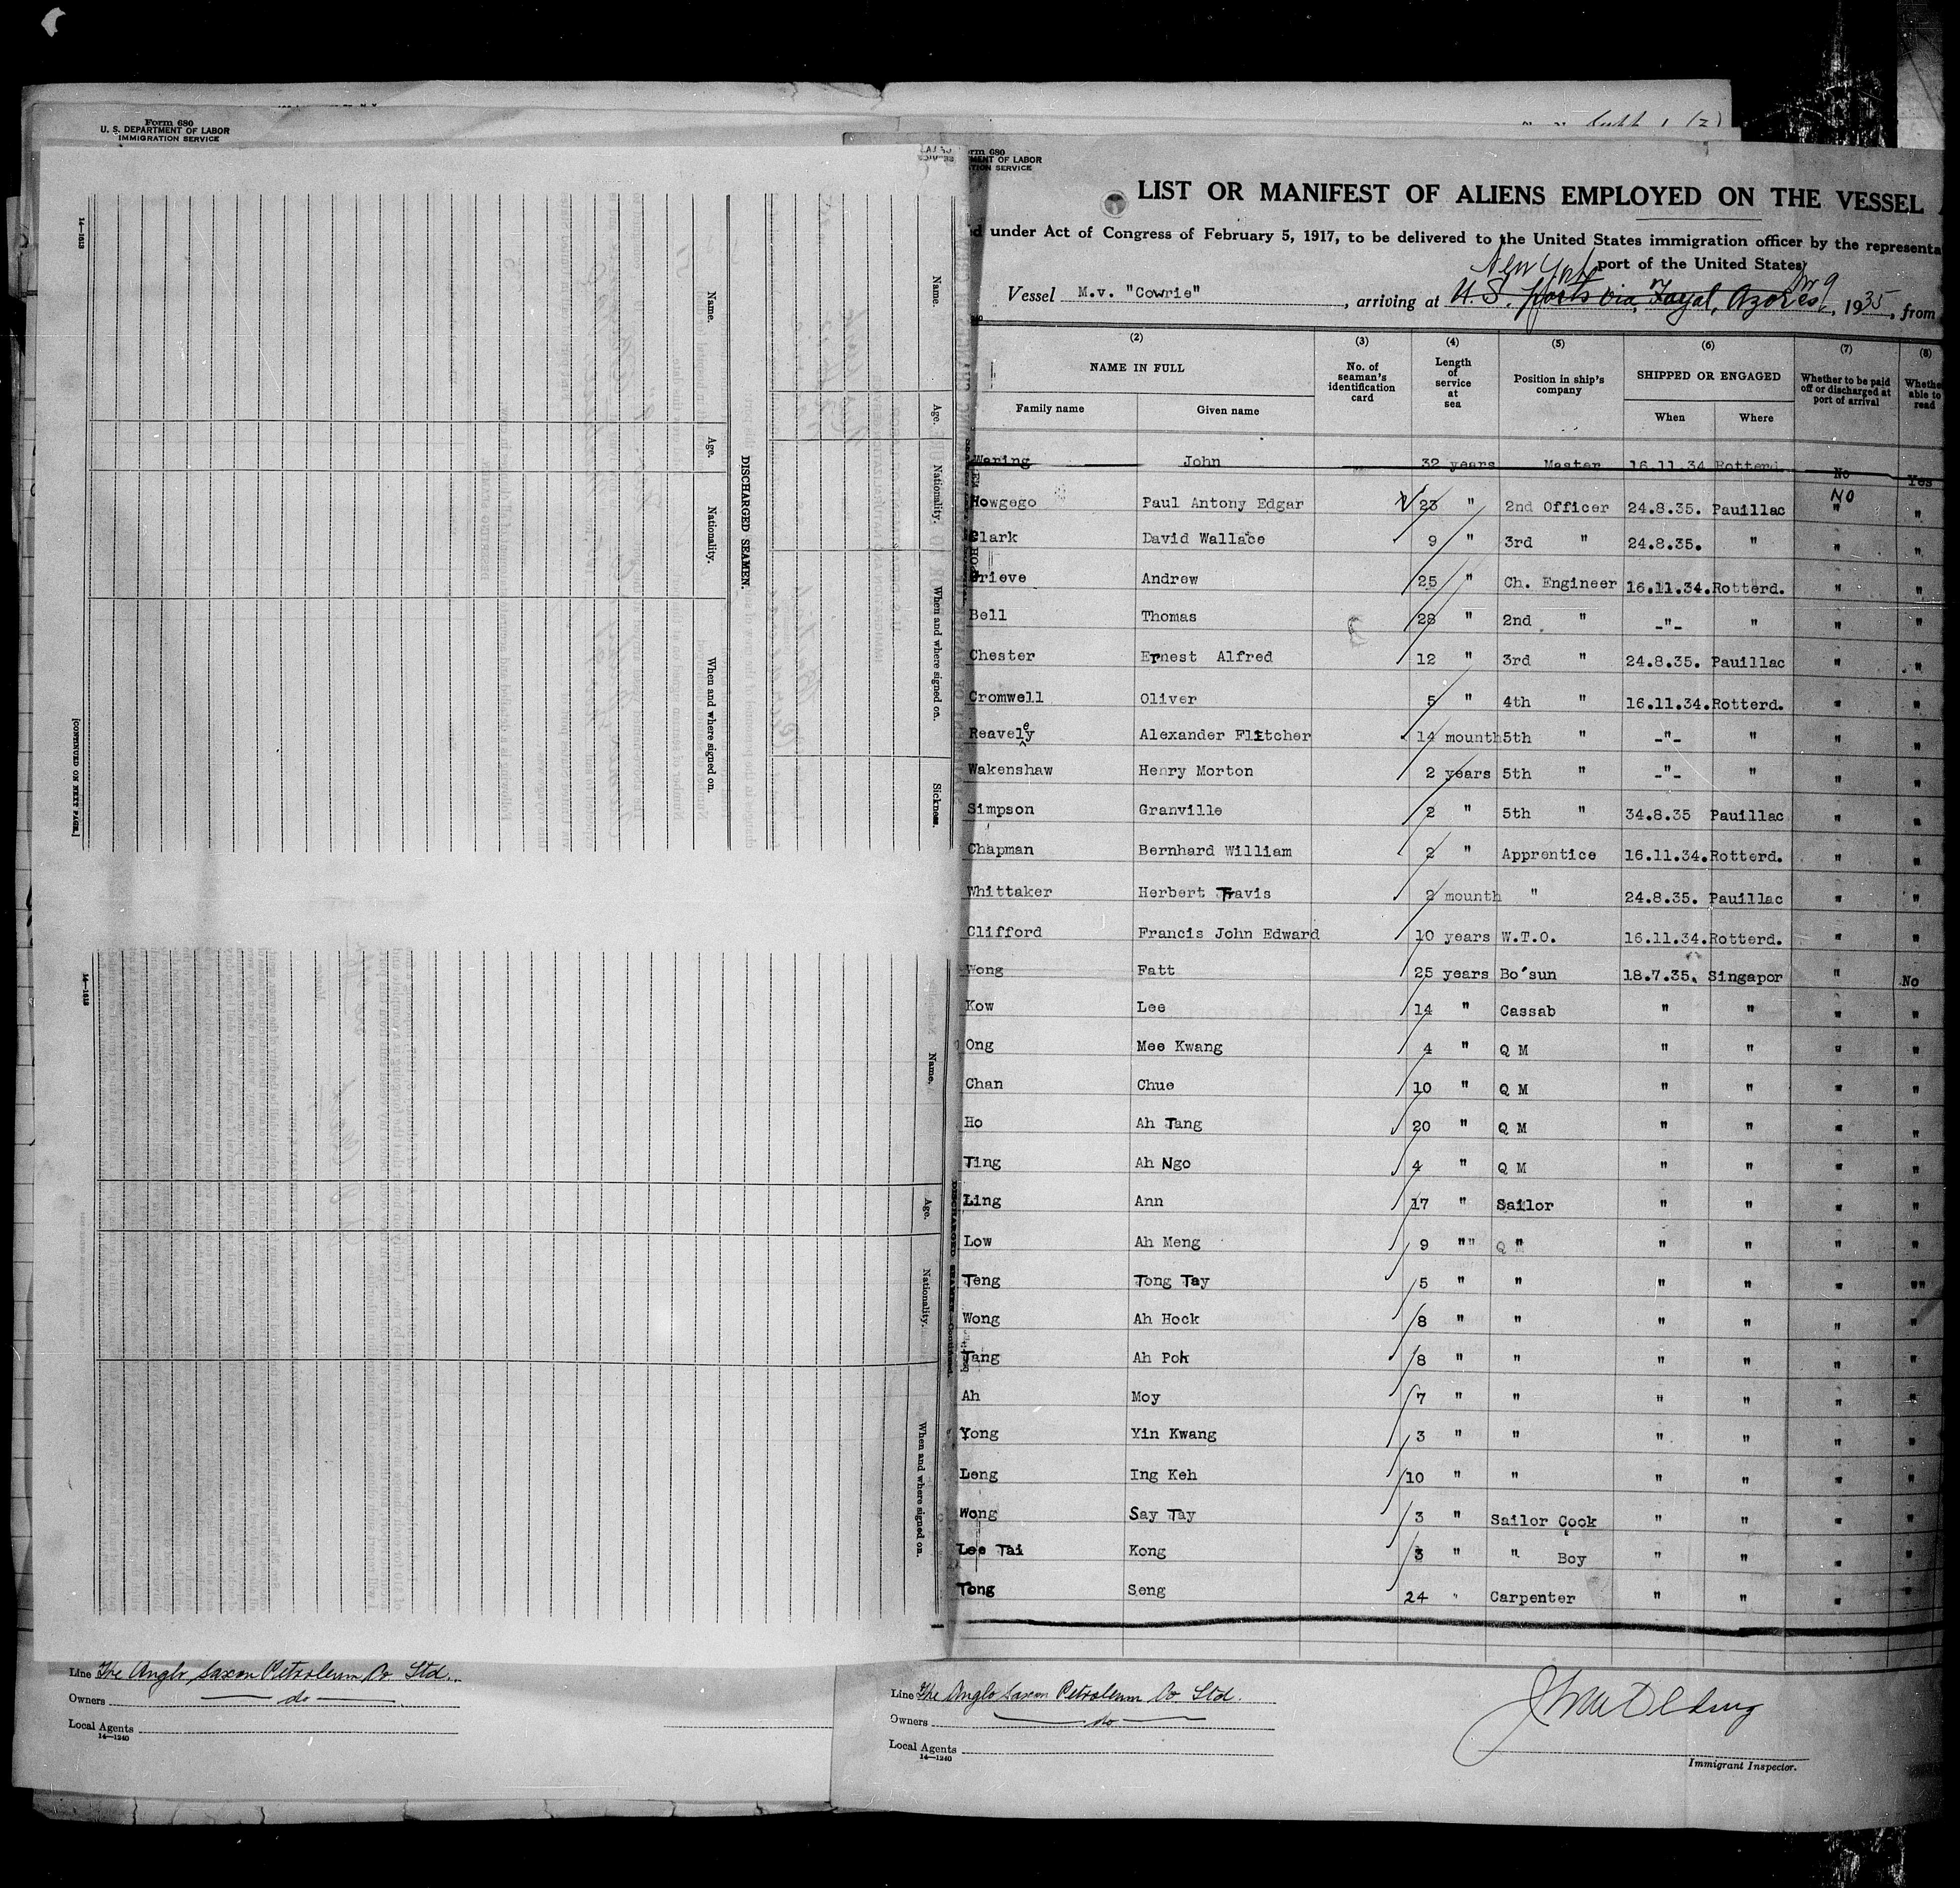 Form 680
U. S. DEPARTMENT OF LABOR
IMMIGRATION SERVICE
14—1613
[CONTINUED ON NEXT PAGE.]
Name.
Age.
Nationality.
When and where signed on.
DISCHARGED SEAMEN.
Name.
Age.
Nationality.
When and where signed on.
Sickness.
14—1613
Name.
Age.
Nationality.
When and where signed on.
DISCHARGED SEAMEN—Continued.
Line The Anglo Saxon Petroleum Co Ltd.
Owners — do —
Local Agents
14—1240
rm 680
MENT OF LABOR
TION SERVICE
LIST OR MANIFEST OF ALIENS EMPLOYED ON THE VESSEL
d under Act of Congress of February 5, 1917, to be delivered to the United States immigration officer by the representa
port of the United States
New York
Vessel M.v. "Cowrie", arriving at U.S. ports via Fayal, Azores, 1935, from
(2) (3) (4) (5) (6) (7) (8)
NAME IN FULL No. of seaman's identification card Length of service at sea Position in ship's company SHIPPED OR ENGAGED Whether to be paid off or discharged at port of arrival Whethe able to read
Family name Given name When Where
Waring John 32 years Master 16.11.34 Rotterd No Yes
NO
Howgego Paul Antony Edgar 23 " 2nd Officer 24.8.35. Pauillac " "
Clark David Wallace 9 " 3rd " 24.8.35. " " "
Grieve Andrew 25 " Ch. Engineer 16.11.34. Rotterd. " "
Bell Thomas 28 " 2nd " -"- " " "
Chester Ernest Alfred 12 " 3rd " 24.8.35. Pauillac " "
Cromwell Oliver 5 " 4th " 16.11.34. Rotterd. " "
Reaveley Alexander Flitcher 14 mounth 5th " -"- " " "
Wakenshaw Henry Morton 2 years 5th " -"- " " "
Simpson Granville 2 " 5th " 34.8.35 Pauillac " "
Chapman Bernhard William 2 " Apprentice 16.11.34. Rotterd. " "
Whittaker Herbert Travis 2 mounth " 24.8.35. Pauillac " "
Clifford Francis John Edward 10 years W.T.O. 16.11.34. Rotterd. " "
Wong Fatt 25 years Bo'sun 18.7.35. Singapor " No
Kow Lee 14 " Cassab " " " "
Ong Mee Kwang 4 " Q M " " " "
Chan Chue 10 " Q M " " " "
Ho Ah Tang 20 " Q M " " " "
Ting Ah Ngo 4 " Q M " " " "
Ling Ann 17 " Sailor " " " "
Low Ah Meng 9 "" " " " " "
Teng Tong Tay 5 " " " " " ""
Wong Ah Hock 8 " " " " " "
Tang Ah Poh 8 " " " " " "
Ah Moy 7 " " " " " "
Yong Yin Kwang 3 " " " " " "
Leng Ing Keh 10 " " " " " "
Wong Say Tay 3 " Sailor Cook " " " "
Lee Tai Kong 3 " " Boy " " " "
Tong Seng 24 " Carpenter " " " "
Line The Anglo Saxon Petroleum Co Ltd.
Owners — do —
Local Agents
14—1240
Immigrant Inspector.